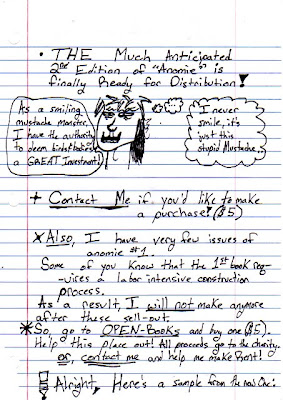 • THE Much Anticipated
2nd Edition of "Anomie" is
finally Ready for Distribution!
As a smiling
mustache monster,
I have the authority
to deem
a GREAT Investment!
I never
smile, it's
just this
stupid Mustache.
+ Contact Me if you'd like to make
a purchase! ($5)
X Also, I have very few issues of
anomie #1.
Some of you know that the 1st book req-
uires a labor intensive construction
process.
As a result, I will not make anymore
after these sell-out.
* So, go to OPEN-BOOKS and buy one ($5).
Help this place out! All proceeds go to the charity.
or, contact me and help me make Rent!
! Alright, Here's a sample from the new One: